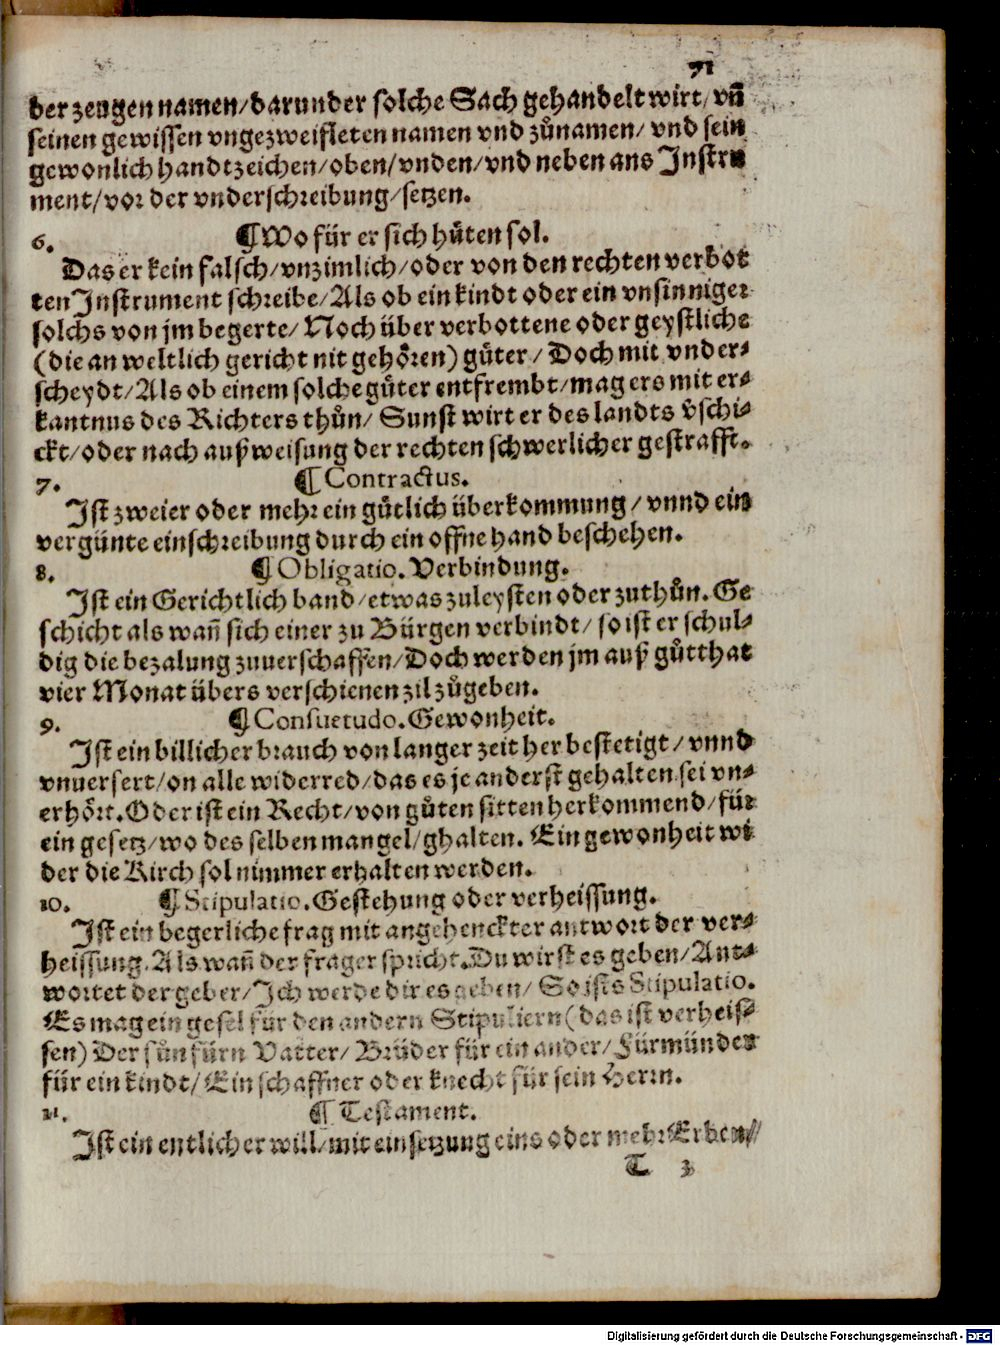 71
der zeugen namen/darunder solche Sach gehandelt wirt/vñ
seinen gewissen vngezweifleten namen vnd zůnamen/vnd sein
gewonlich handtzeichen/oben/vnden/vnd neben ans Instru
ment/vor der vnderschreibung/setzen.
6. ¶Wo für er sich hůten sol.
Das er kein falsch/vnzimlich/oder von den rechten verbot
ten Instrument schreibe/Als ob ein kindt oder ein vnsinniger
solchs von jm begerte/Noch über verbottene oder geystliche
(die an weltlich gericht nit gehôren) gůter/Doch mit vnder⸗
scheydt/Als ob einem solche gůter entfrembt/mag ers mit er⸗
kantnus des Richters thůn/Sunst wirt er des landts v̊schi⸗
ckt/oder nach außweisung der rechten schwerlicher gestrafft.
7. ¶Contractus.
Ist zweier oder mehr ein gůtlich überkommung/vnnd ein
vergünte einschreibung durch ein offne hand beschehen.
8. ¶Obligatio. Verbindung.
Ist ein Gerichtlich band/etwas zuleysten oder zuthůn. Ge
schicht als wañ sich einer zu Bürgen verbindt/so ist er schul⸗
dig die bezalung zuuerschaffen/Doch werden jm auß gůtthat
vier Monat übers verschienen zil zůgeben.
9. ¶Consuetudo. Gewonheit.
Ist ein billicher brauch von langer zeit her bestetigt/vnnd
vnuersert/on alle widerred/das es je anderst gehalten sei vn⸗
erhôrt. Oder ist ein Recht/von gůten sitten herkommend/für
ein gesetz/wo des selben mangel/ghalten. Ein gewonheit wi
der die Kirch sol nimmer erhalten werden.
10. ¶Stipulatio. Gestehung oder verheissung.
Ist ein begerliche frag mit angehenckter antwort der ver⸗
heissung. Als wañ der frager spricht. Du wirst es geben/Ant⸗
wortet der geber/Ich werde dir es geben/So ists Stipulatio.
Es mag ein gesel für den andern Stipuliern (das ist verheis⸗
sen) Der sůn fürn Vatter/Brüder für ein ander/Fürmünder
für ein kindt/Ein schaffner oder knecht für sein Herrn.
11. ¶Testament.
Ist ein entlicher will/mit einsetzung eins oder mehr Erben/
T 3
Digitalisierung gefördert durch die Deutsche Forschungsgemeinschaft - DFG